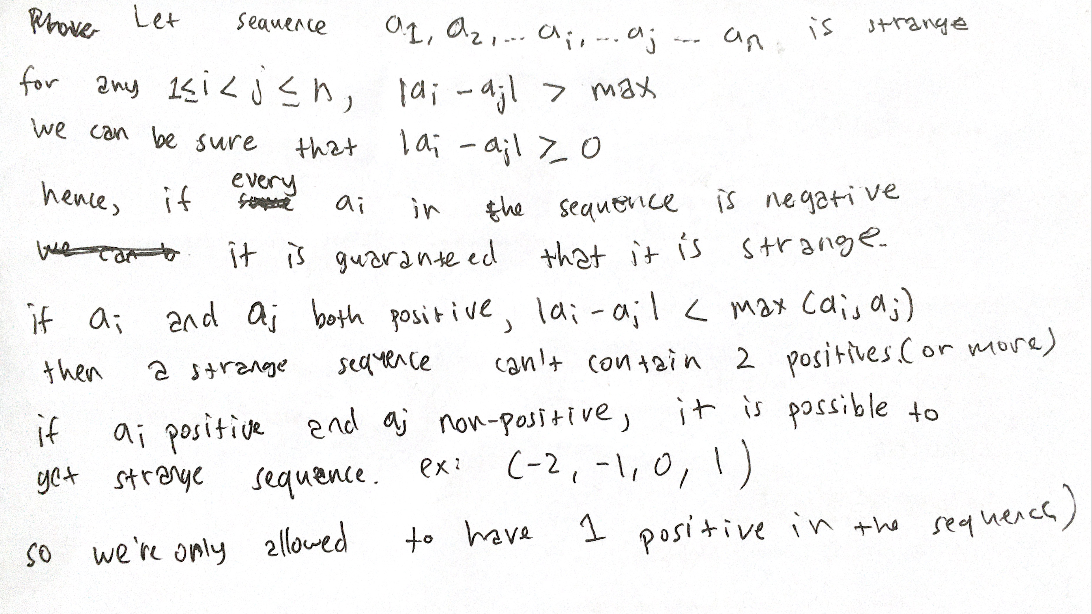 Prove Let sequence a1, a2, ... ai, ... aj ... an is strange
for any 1≤i<j≤n, |ai - aj| > max
we can be sure that |ai - aj| ≥ 0
hence, if every ai in the sequence is negative
it is guaranteed that it is strange.
if ai and aj both positive, |ai - aj| < max (ai, aj)
then a strange sequence can't contain 2 positives.(or more)
if ai positive and aj non-positive, it is possible to
get strange sequence. ex: (-2, -1, 0, 1)
so we're only allowed to have 1 positive in the sequence)